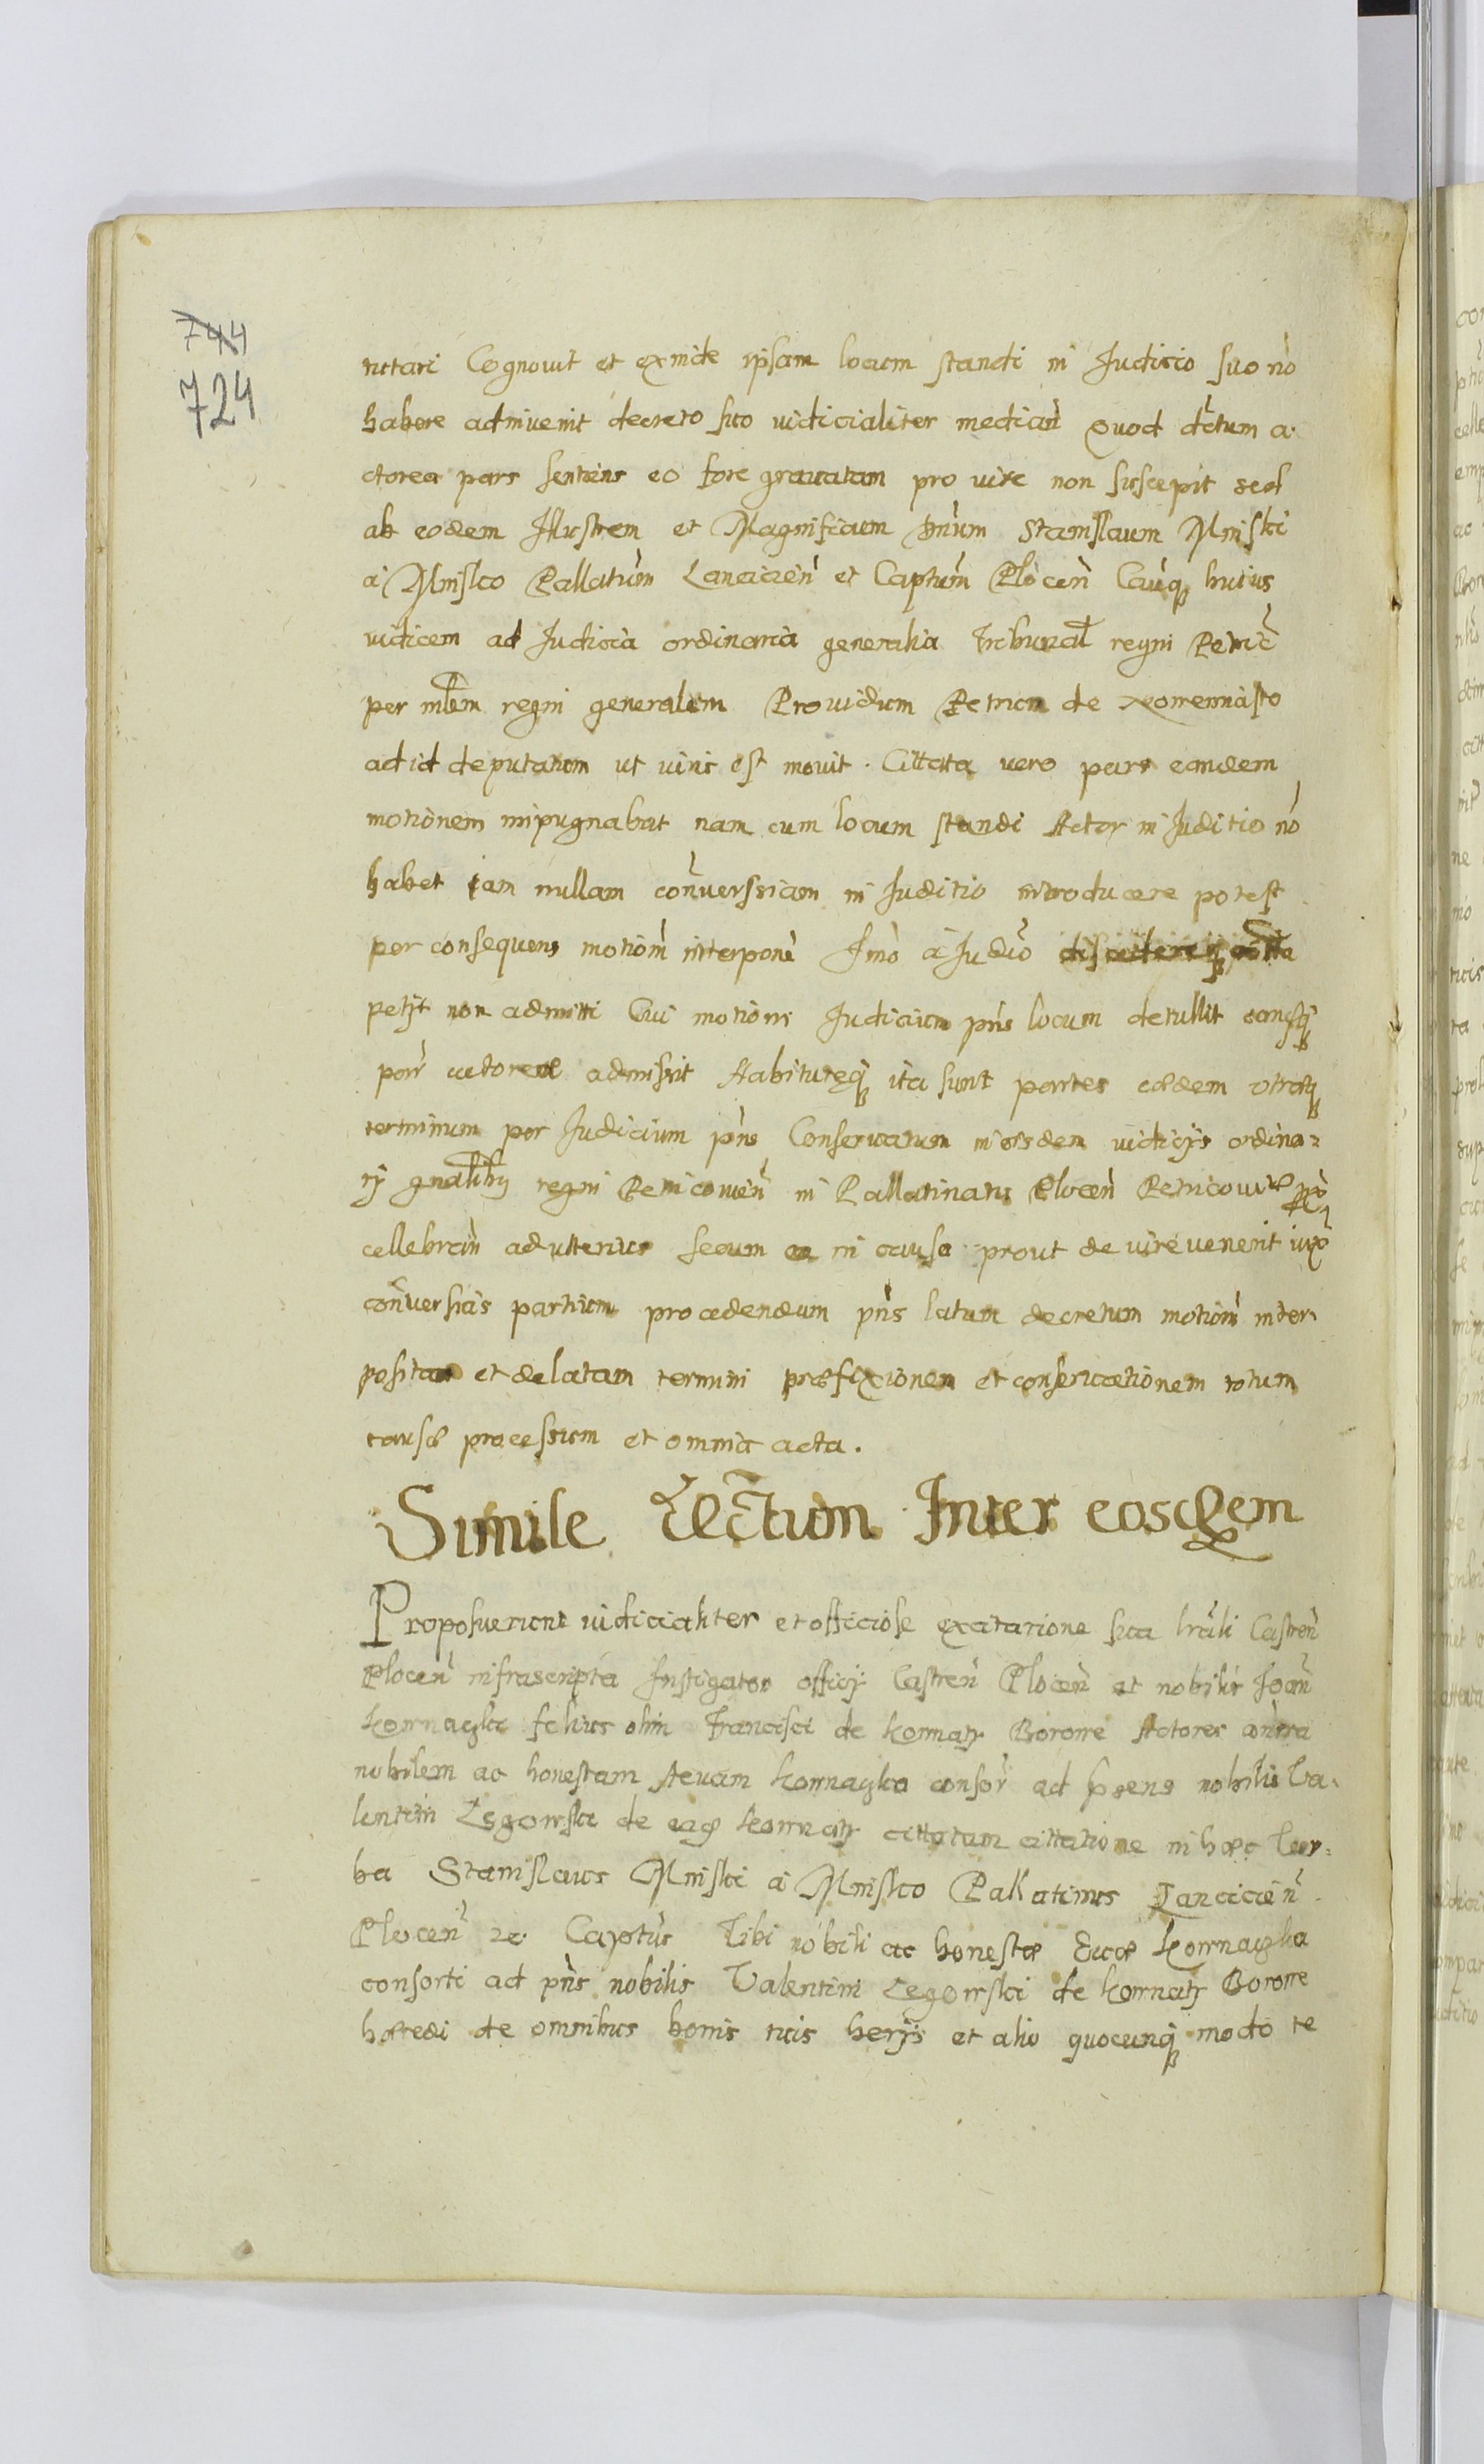 744
724
tutari Cognovit et exinde ipsam locum standi in Judicio suo nō
habere adinvenit decreto suo iudicialiter median̄ Quod dctum a-
ctorea pars sentiens eo fore gravatam pro iure non suscepit sed
ab eodem Illustrem et Magnificum Dnum Stanislaum Minski
a Minsko Pallatum Lancicien̄ et Captum Plocen̄ Caūq huius
iudicem ad Judicia ordinaria generalia Tribunal regni Petric
per mlem regni generalem Providum Petrum de
ad id deputatum ut iuris est movit. Cittata vero pars eandem
motionem impugnabat nam cum locum standi Actor in Juditio nō
habet iam nullam conversiam in Juditio introducere potest
per consequens motiom interponē Imo a Judio
petyt non admitti Cui motioni Judicium pns locum detullit eamsq
par actorea admissit Habitureq ita sunt partes eadem
terminum per Judicium pns Conservatum in eisdem iudicijs ordina=
rij gnalibus regni Petricovien̄ in Pallatinatu Plocen̄ Petricoviae
cellebran̄ ad ulterius secum in causa prout de iure venerit iux
conversias partium procedendum pns latum decretum motiom inter-
positam et delatam termini præfixionem et conservationem totum
causæ processum et omnia acta.
Simile Decretum Inter eosdem
Proposuerunt iudicialiter et officiose excitatione sua lrali Castren̄
Plocen̄ infrascripta Instigator officij Castren̄ Plocen̄ et nobilis Joan̄
Kornaczki felius olim Francisci de Kornaty Borowe Actores contra
nobilem ac honestam Aevam Kornaczka consor̄ ad psens nobilis Va-
lentini Zegorski de eadem Kornaty cittatam cittatione in hæc ver=
ba Stanislaus Minski a Minsko Pallatinus Lancicien̄
Plocen̄ ze Captus Tibi nobili ac honestæ Evæ Kornaczka
consorti ad pns nobilis Valentini Zegorski de Kornaty Borowe
hæredi de omnibus bonis tuis herijs et alio quocunq modo te